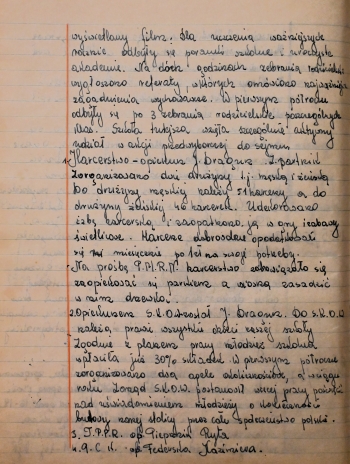 wyświetlany film. Dla uczczenia ważniejszych
rocznic odbyły się poranki szkolne i uroczyste
akademie. Na dwóch godzinach zebrania rodzicielskie
wygłoszono referaty, w których omówiono najważniejsze
zagadnienia wychowawcze. W pierwszym półroczu
odbyły się po 3 zebrania rodzicielskie poszczególnych
klas. Szkoła tutejsza wzięła szczególnie aktywny
udział w akcji przedwyborczej do sejmu.
1. Harcerstwo - opiekun J. Dragun
Zorganizowano dwie drużyny t.j. męską i żeńską
Do drużyny męskiej należy 51 harcerzy, a do
drużyny żeńskiej 40 harcerek. Udekorowano
izbę harcerską i zaopatrzono ją w gry i zabawy
świetlicowe. Harcerze dobrowolnie opodatkowali
się na miesięcznie po 1 zł na swoje potrzeby.
Na prośbę G.M.R.N. harcerstwo zobowiązało się
zaopiekować się parkiem a wiosną zasadzić
w nim drzewka.
2. Opiekunem S.K.O. został J. Dragun. Do S.K.O.
należą prawie wszystkie dzieci naszej szkoły
Zgodnie z planem pracy młodzież szkolna
wpłaciła już 30% składek. W pierwszym półroczu
zorganizowano dwa apele, a w ciągu
roku Zarząd S.K.O.W. postanowił więcej pracy poświęcić
nad uświadomieniem młodzieży o konieczności
budowy naszej stolicy przez całe społeczeństwo polskie.
3. T.P.P.R. op.
4. P.C.K. op. Kazimiera.